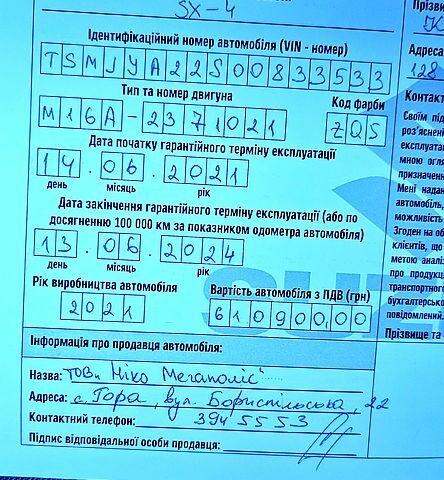 SX-4
Ідентифікаційний номер автомобіля (VIN - номер)
TSMJYA22S00833533
Тип та номер двигуна
Код фарби
M16A-2371021
ZQ5
Дата початку гарантійного терміну експлуатації
14.06.2021
день місяць рік
Дата закінчення гарантійного терміну експлуатації (або по
досягненню 100 000 км за показником одометра автомобіля)
13.06.2024
день місяць рік
Рік виробництва автомобіля
Вартість автомобіля з ПДВ (грн)
2021
610900,00
SUZ
Інформація про продавця автомобіля:
Назва: ТОВ "Ніко Мегаполіс"
Адреса: с. Гора, вул. Бориспільська, 22
Контактний телефон: 394 55 53
Підпис відповідальної особи продавця:
Прізви
Адреса
128
Контакт
Своїм під
роз'яснені
експлуата
мною огля
призначенн
Мені надан
автомобіль,
можливість
Згоден на об
клієнтів, що
метою аналі
про продукц
транспортного
бухгалтерсько
повідомлений.
Прізвище та